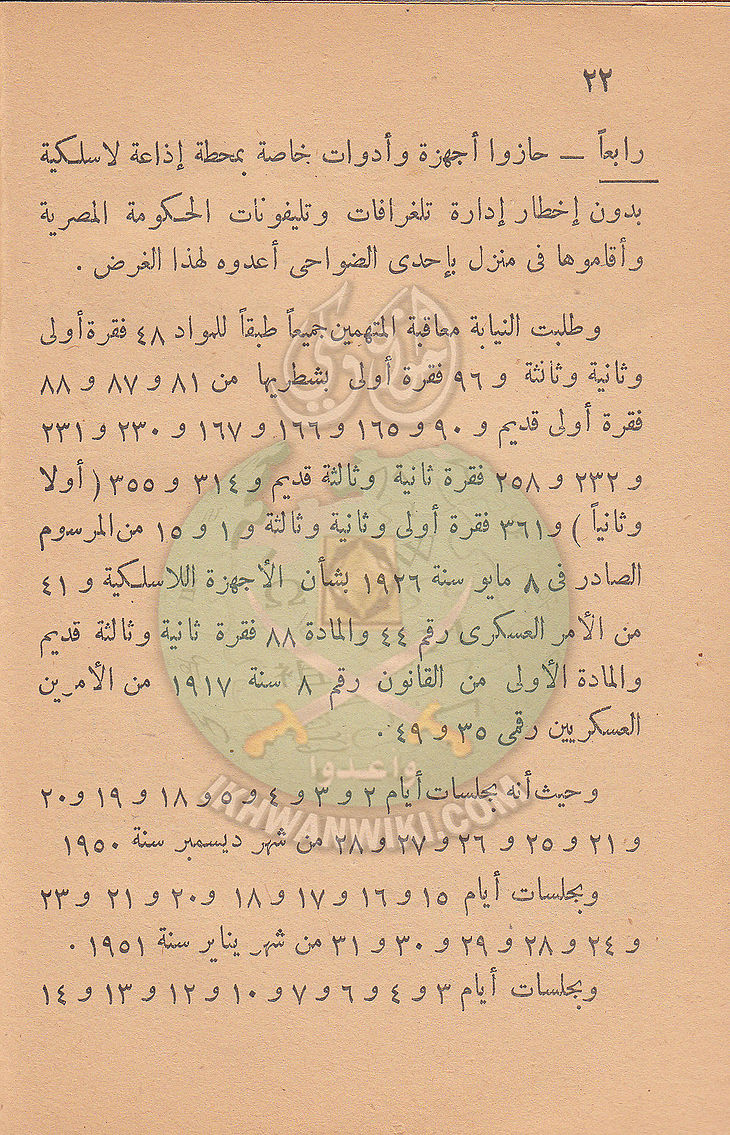 ٢٢
رابعاً — حازوا أجهزة وأدوات خاصة بمحطة إذاعة لاسلكية
بدون إخطار إدارة تلغرافات وتليفونات الحكومة المصرية
وأقاموها فى منزل بإحدى الضواحى أعدوه لهذا الغرض .
وطلبت النيابة معاقبة المتهمين جميعاً طبقاً للمواد ٤٨ فقرة أولى
وثانية وثالثة و ٩٦ فقرة أولى بشطريها من ٨١ و ٨٧ و ٨٨
فقرة أولى قديم و ٩٠ و ١٦٥ و ١٦٦ و ١٦٧ و ٢٣٠ و ٢٣١
و ٢٣٢ و ٢٥٨ فقرة ثانية وثالثة قديم و ٣١٤ و ٣٥٥ ( أولا
وثانياً ) و٣٦١ فقرة أولى وثانية وثالثة و ١ و ١٥ من المرسوم
الصادر فى ٨ مايو سنة ١٩٢٦ بشأن الأجهزة اللاسلكية و ٤١
من الأمر العسكرى رقم ٤٤ والمادة ٨٨ فقرة ثانية وثالثة قديم
والمادة الأولى من القانون رقم ٨ سنة ١٩١٧ من الأمرين
العسكريين رقمى ٣٥ و ٤٩ .
وحيث أنه بجلسات أيام ٢ و ٣ و ٤ و ٥ و ١٨ و ١٩ و٢٠
و ٢١ و ٢٥ و ٢٦ و ٢٧ و ٢٨ من شهر ديسمبر سنة ١٩٥٠
وبجلسات أيام ١٥ و ١٦ و ١٧ و ١٨ و٢٠ و ٢١ و ٢٣
و ٢٤ و ٢٨ و ٢٩ و ٣٠ و ٣١ من شهر يناير سنة ١٩٥١ .
وبجلسات أيام ٣ و ٤ و ٦ و ٧ و ١٠ و ١٢ و ١٣ و ١٤
واعدوا
IKHWANWIKI.COM